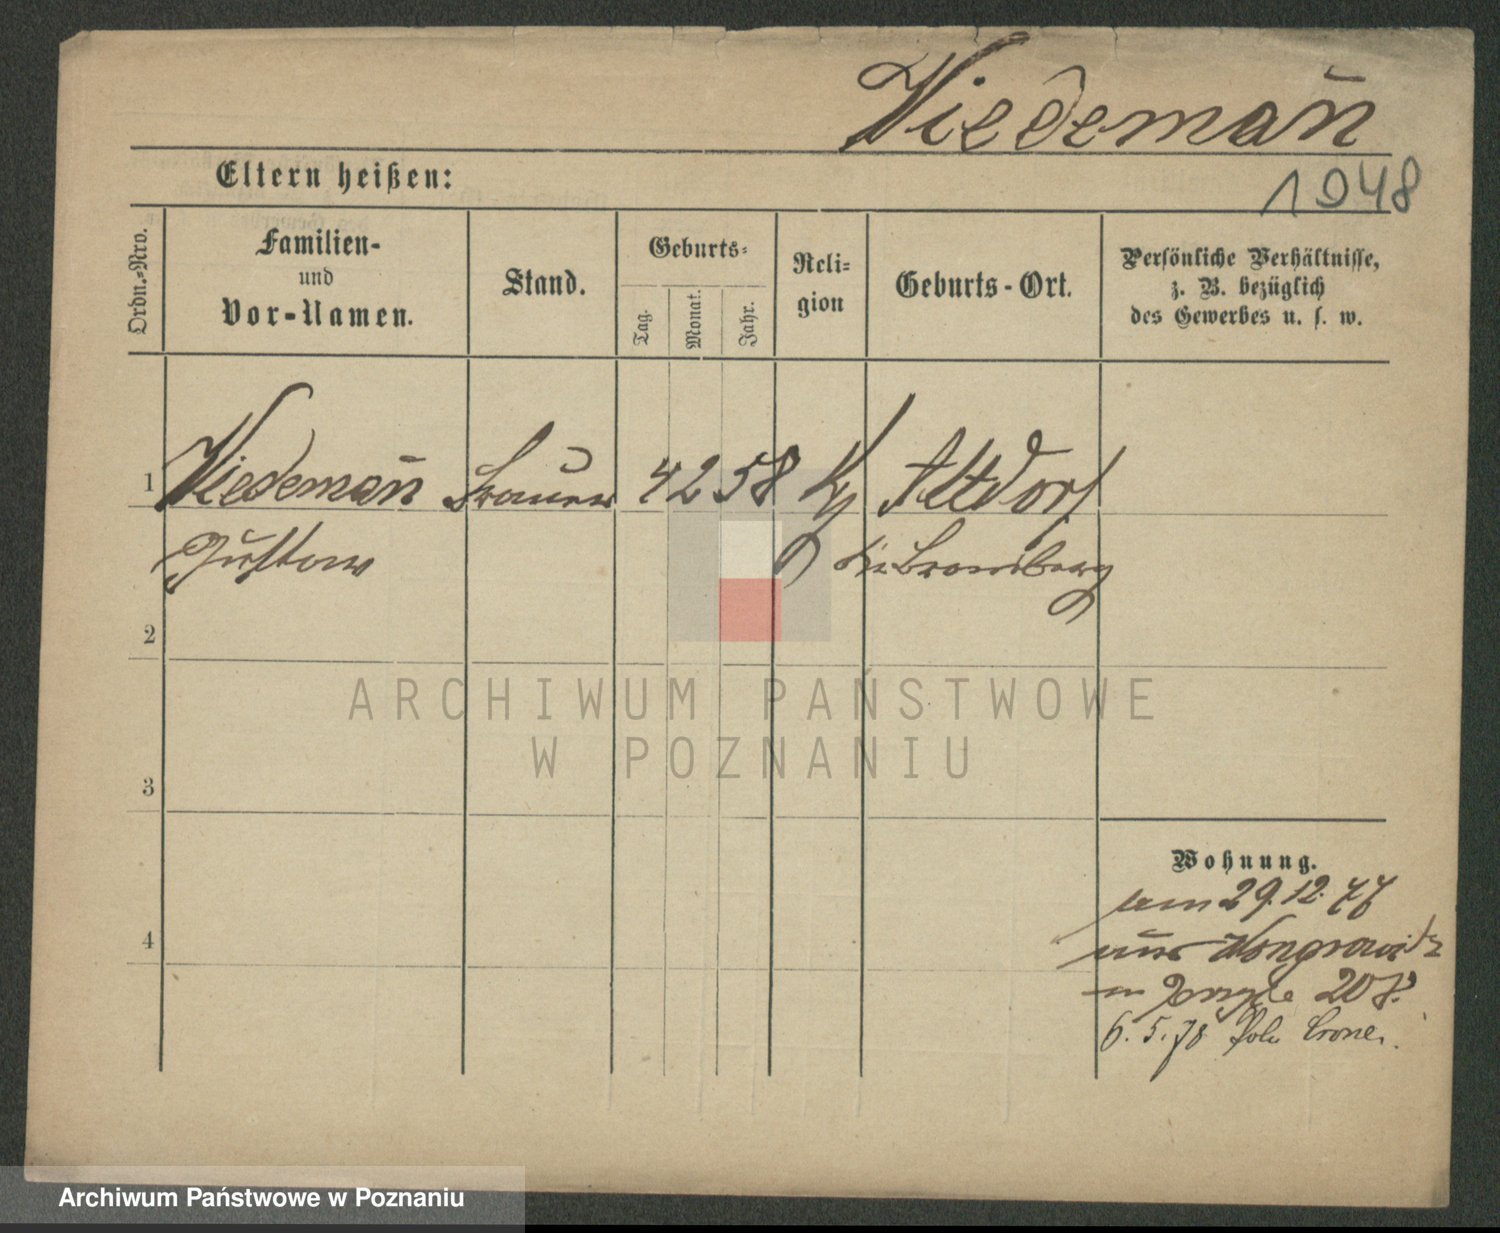 Wiedemañ
Eltern heißen:
1948
Ordn.-Nro.
Familien-
und
Vor-Namen.
Stand.
Geburts-
Tag.
Monat.
Jahr.
Reli-
gion
Geburts-Ort.
Persönliche Verhältnisse,
z. B. bezüglich
des Gewerbes u. s. w.
1 Wiedemañ Brauer 4 2 58 Altdorf
Gustav Kr Bromberg
2
ARCHIWUM PAŃSTWOWE
W POZNANIU
3
Wohnung.
29.12.77
4
aus Wongrowitz
20
6.5.78
Archiwum Państwowe w Poznaniu